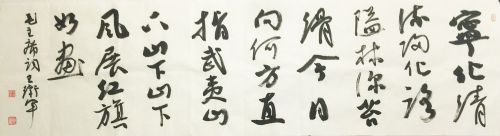 寧化清
流归化路
隘林深苔
滑今日
向何方直
指武夷山
下山下山下
風展红旗
如畫
毛主席詞 王衛軍